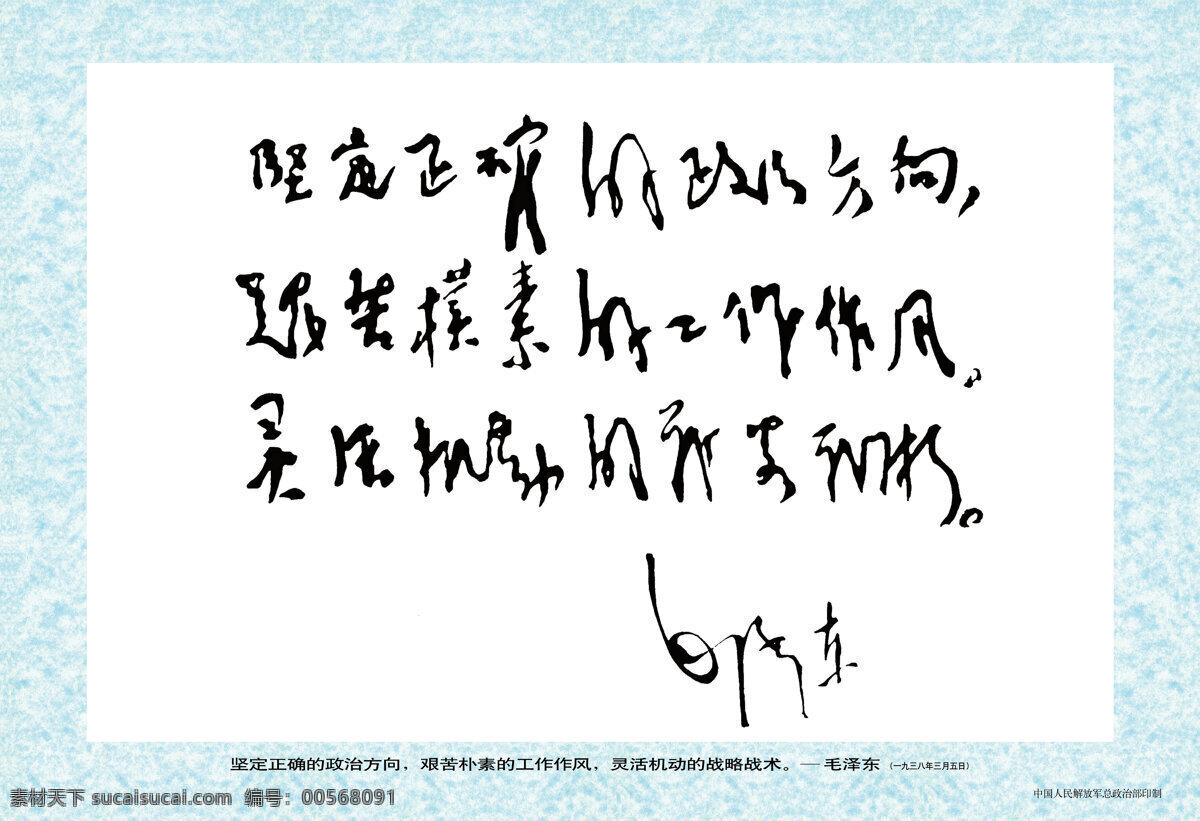 坚定正确的政治方向，
艰苦樸素的工作作风。
灵活机动的战略战术。
毛泽东
坚定正确的政治方向，艰苦朴素的工作作风，灵活机动的战略战术。— 毛泽东（一九三八年三月五日）
素材天下 sucaisucai.com 编号：00568091
中国人民解放军总政治部印制